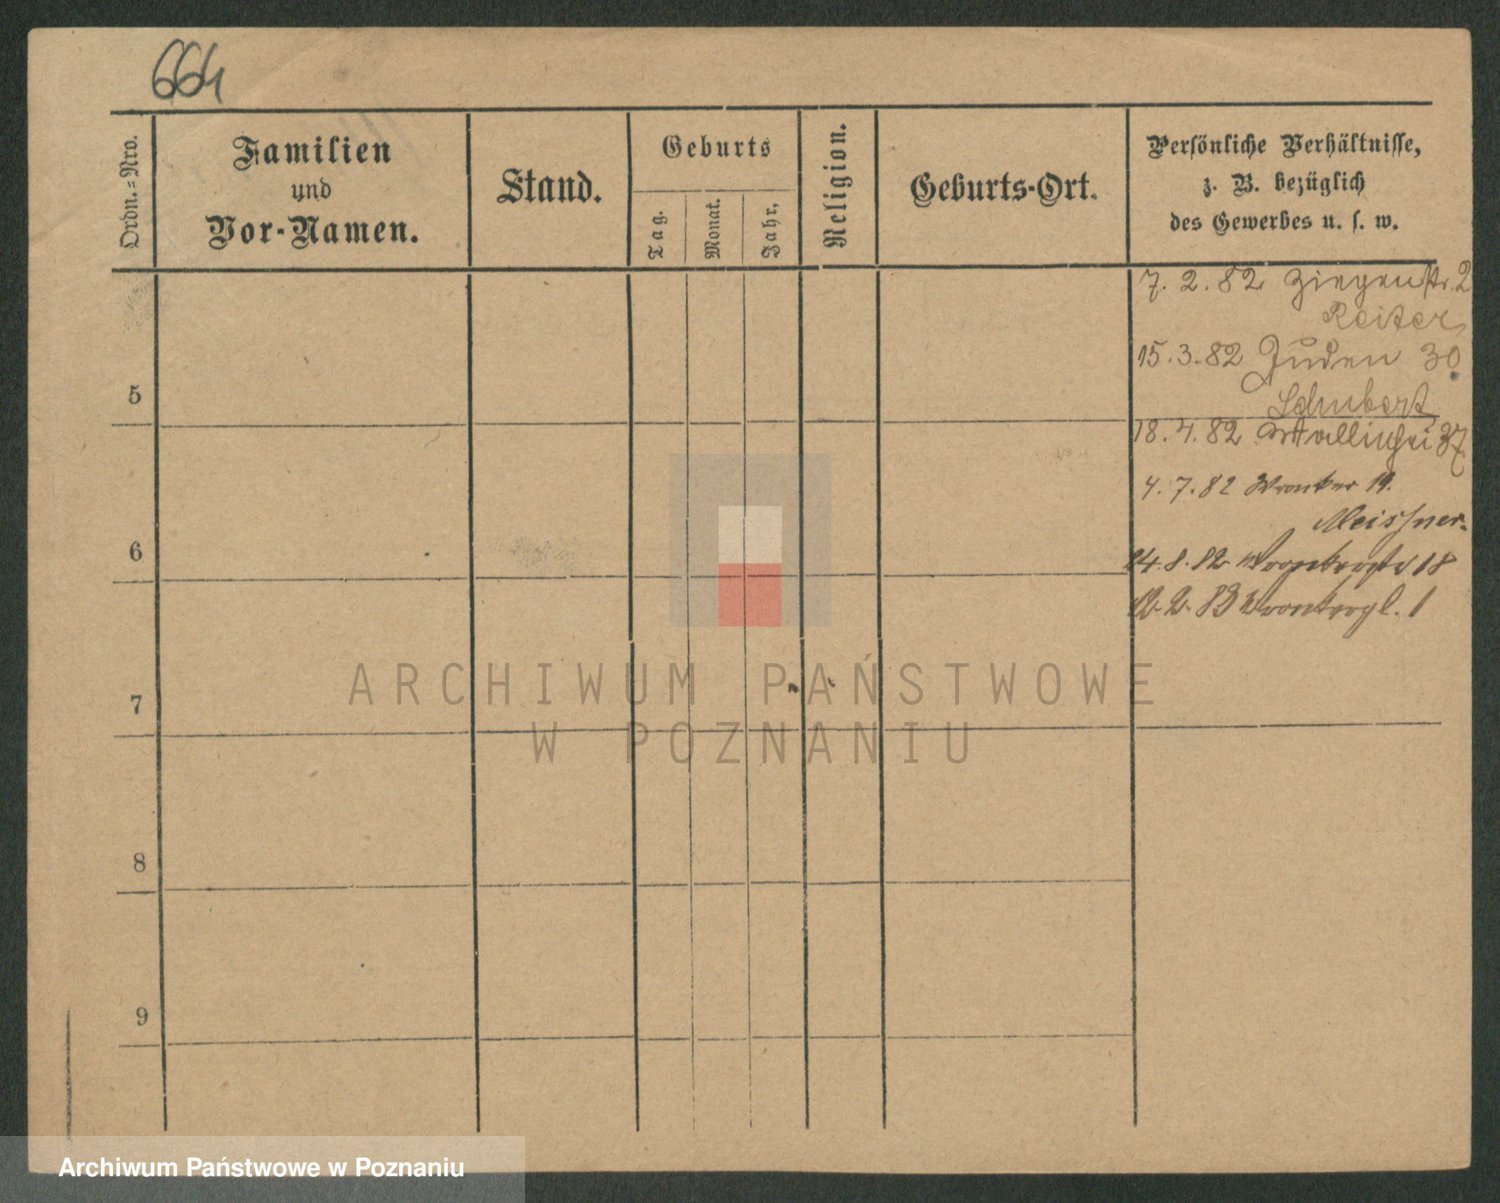 664
Ordn.=Nro.
Familien
und
Vor-Namen.
Stand.
Geburts
Tag.
Monat.
Jahr.
Religion.
Geburts-Ort.
Persönliche Verhältnisse,
z. B. bezüglich
des Gewerbes u. s. w.
7. 2. 82 Ziegenstr. 2
Reiter
15. 3. 82 Juden 30
Schubert
5
18. 4. 82 Wallischei 37
4. 7. 82 Wronker 19.
Meissner
6
24. 8. 82 18
12. 2. 83 Wronkerpl. 1
7
8
9
ARCHIWUM PAŃSTWOWE
W POZNANIU
Archiwum Państwowe w Poznaniu